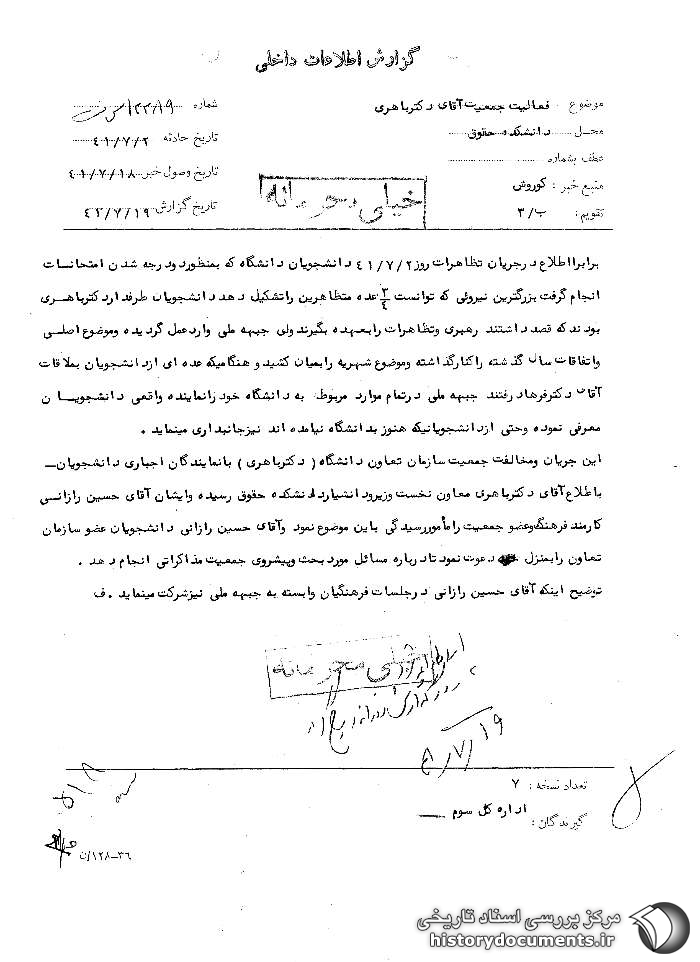 گزارش اطلاعات داخلی
موضوع : فعالیت جمعیت آقای دکترباهری
محل : دانشکده حقوق
عطف بشماره
منبع خبر : کوروش
تقویم : ب/۳
شماره ۱۳۳۱۹/
تاریخ حادثه ۴۱/۷/۲
تاریخ وصول خبر ۴۱/۷/۱۸
تاریخ گزارش ۴۲/۷/۱۹
خیلی محرمانه
برابر اطلاع درجریان تظاهرات روز ۴۱/۷/۲ دانشجویان دانشگاه که بمنظور دودرجه شدن امتحانات
انجام گرفت بزرگترین نیروئی که توانست ۳/۴ عده متظاهرین راتشکیل دهد دانشجویان طرفدار دکترباهری
بودند که قصد داشتند رهبری وتظاهرات رابعهده بگیرند ولی جبهه ملی وارد عمل گردیده وموضوع اصلی
واتفاقات سال گذشته را کنارگذاشته وموضوع شهریه رابمیان کشید و هنگامیکه عده ای ازدانشجویان بملاقات
آقای دکترفرهاد رفتند جبهه ملی درتمام موارد مربوط به دانشگاه خود رانماینده واقعی دانشجویان
معرفی نموده وحتی ازدانشجویانیکه هنوز بدانشگاه نیامده اند نیزجانبداری مینماید .
این جریان ومخالفت جمعیت سازمان تعاون دانشگاه ( دکترباهری ) بانمایندگان اجباری دانشجویان
باطلاع آقای دکترباهری معاون نخست وزیر ودانشیار دانشکده حقوق رسیده وایشان آقای حسین رازانی
کارمند فرهنگ وعضو جمعیت رامأمور رسیدگی باین موضوع نمود وآقای حسین رازانی دانشجویان عضو سازمان
تعاون رابمنزل دعوت نمود تادرباره مسائل مورد بحث وپیشروی جمعیت مذاکراتی انجام دهد .
توضیح اینکه آقای حسین رازانی درجلسات فرهنگیان وابسته به جبهه ملی نیزشرکت مینماید . ف
خیلی محرمانه
۷/۱۹
تعداد نسخه : ۷
گیرندگان : اداره کل سوم
۳۶-۱۲۸/ن
مرکز بررسی اسناد تاریخی
historydocuments.ir